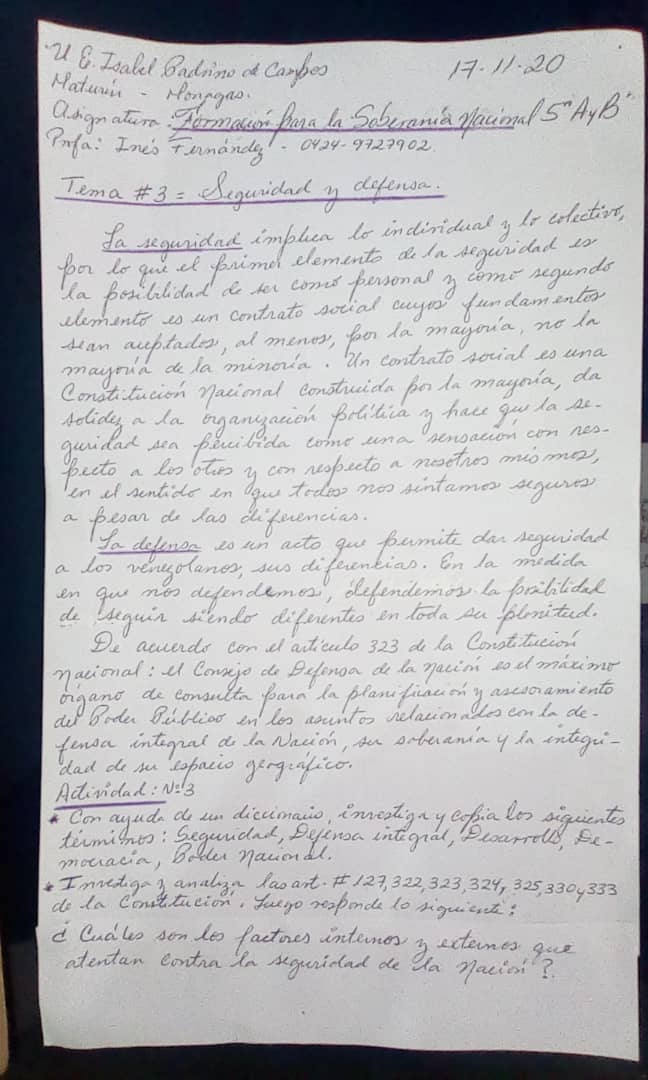 U E. Isabel Padrino de Campos
17-11-20
Maturín - Monagas.
Asignatura: Formación para la Soberanía Nacional 5º "A y B"
Profa: Inés Fernández - 0424-9727902.
Tema #3 = Seguridad y defensa.
La seguridad implica lo individual y lo colectivo,
por lo que el primer elemento de la seguridad es
la posibilidad de ser como personal y como segundo
elemento es un contrato social cuyos fundamentos
sean aceptados, al menos, por la mayoría, no la
mayoría de la minoría. Un contrato social es una
Constitución Nacional construida por la mayoría, da
solidez a la organización política y hace que la se-
guridad sea percibida como una sensación con res-
pecto a los otros y con respecto a nosotros mismos,
en el sentido en que todos nos sintamos seguros
a pesar de las diferencias.
La defensa es un acto que permite dar seguridad
a los venezolanos, sus diferencias. En la medida
en que nos defendemos, defendemos la posibilidad
de seguir siendo diferentes en toda su plenitud.
De acuerdo con el artículo 323 de la Constitución
Nacional: el Consejo de Defensa de la nación es el máximo
órgano de consulta para la planificación y asesoramiento
del Poder Público en los asuntos relacionados con la de-
fensa integral de la Nación, su soberanía y la integri-
dad de su espacio geográfico.
Actividad: Nº 3
* Con ayuda de un diccionario, investiga y copia los siguientes
términos: Seguridad, Defensa integral, Desarrollo, De-
mocracia, Poder Nacional.
* Investiga y analiza las art. # 127, 322, 323, 324, 325, 330 y 333
de la Constitución. Luego responde lo siguiente:
¿ Cuáles son los factores internos y externos que
atentan contra la seguridad de la Nación?